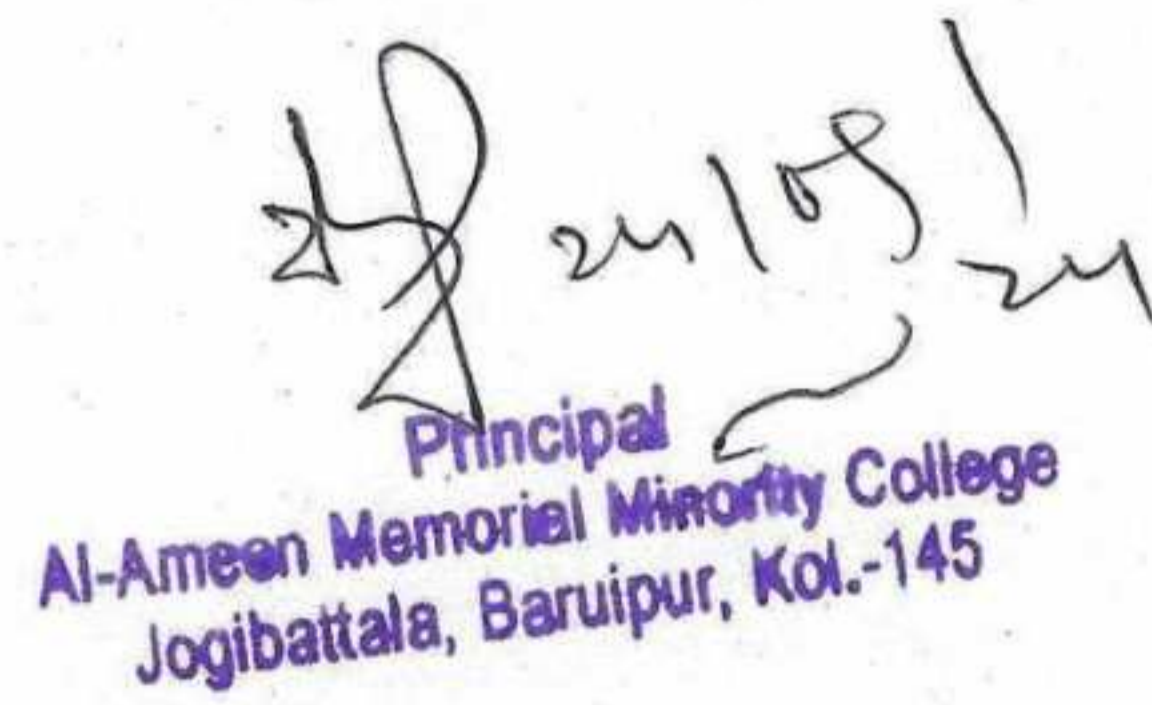 24/05/24
Principal
Al-Ameen Memorial Minority College
Jogibattala, Baruipur, Kol.-145